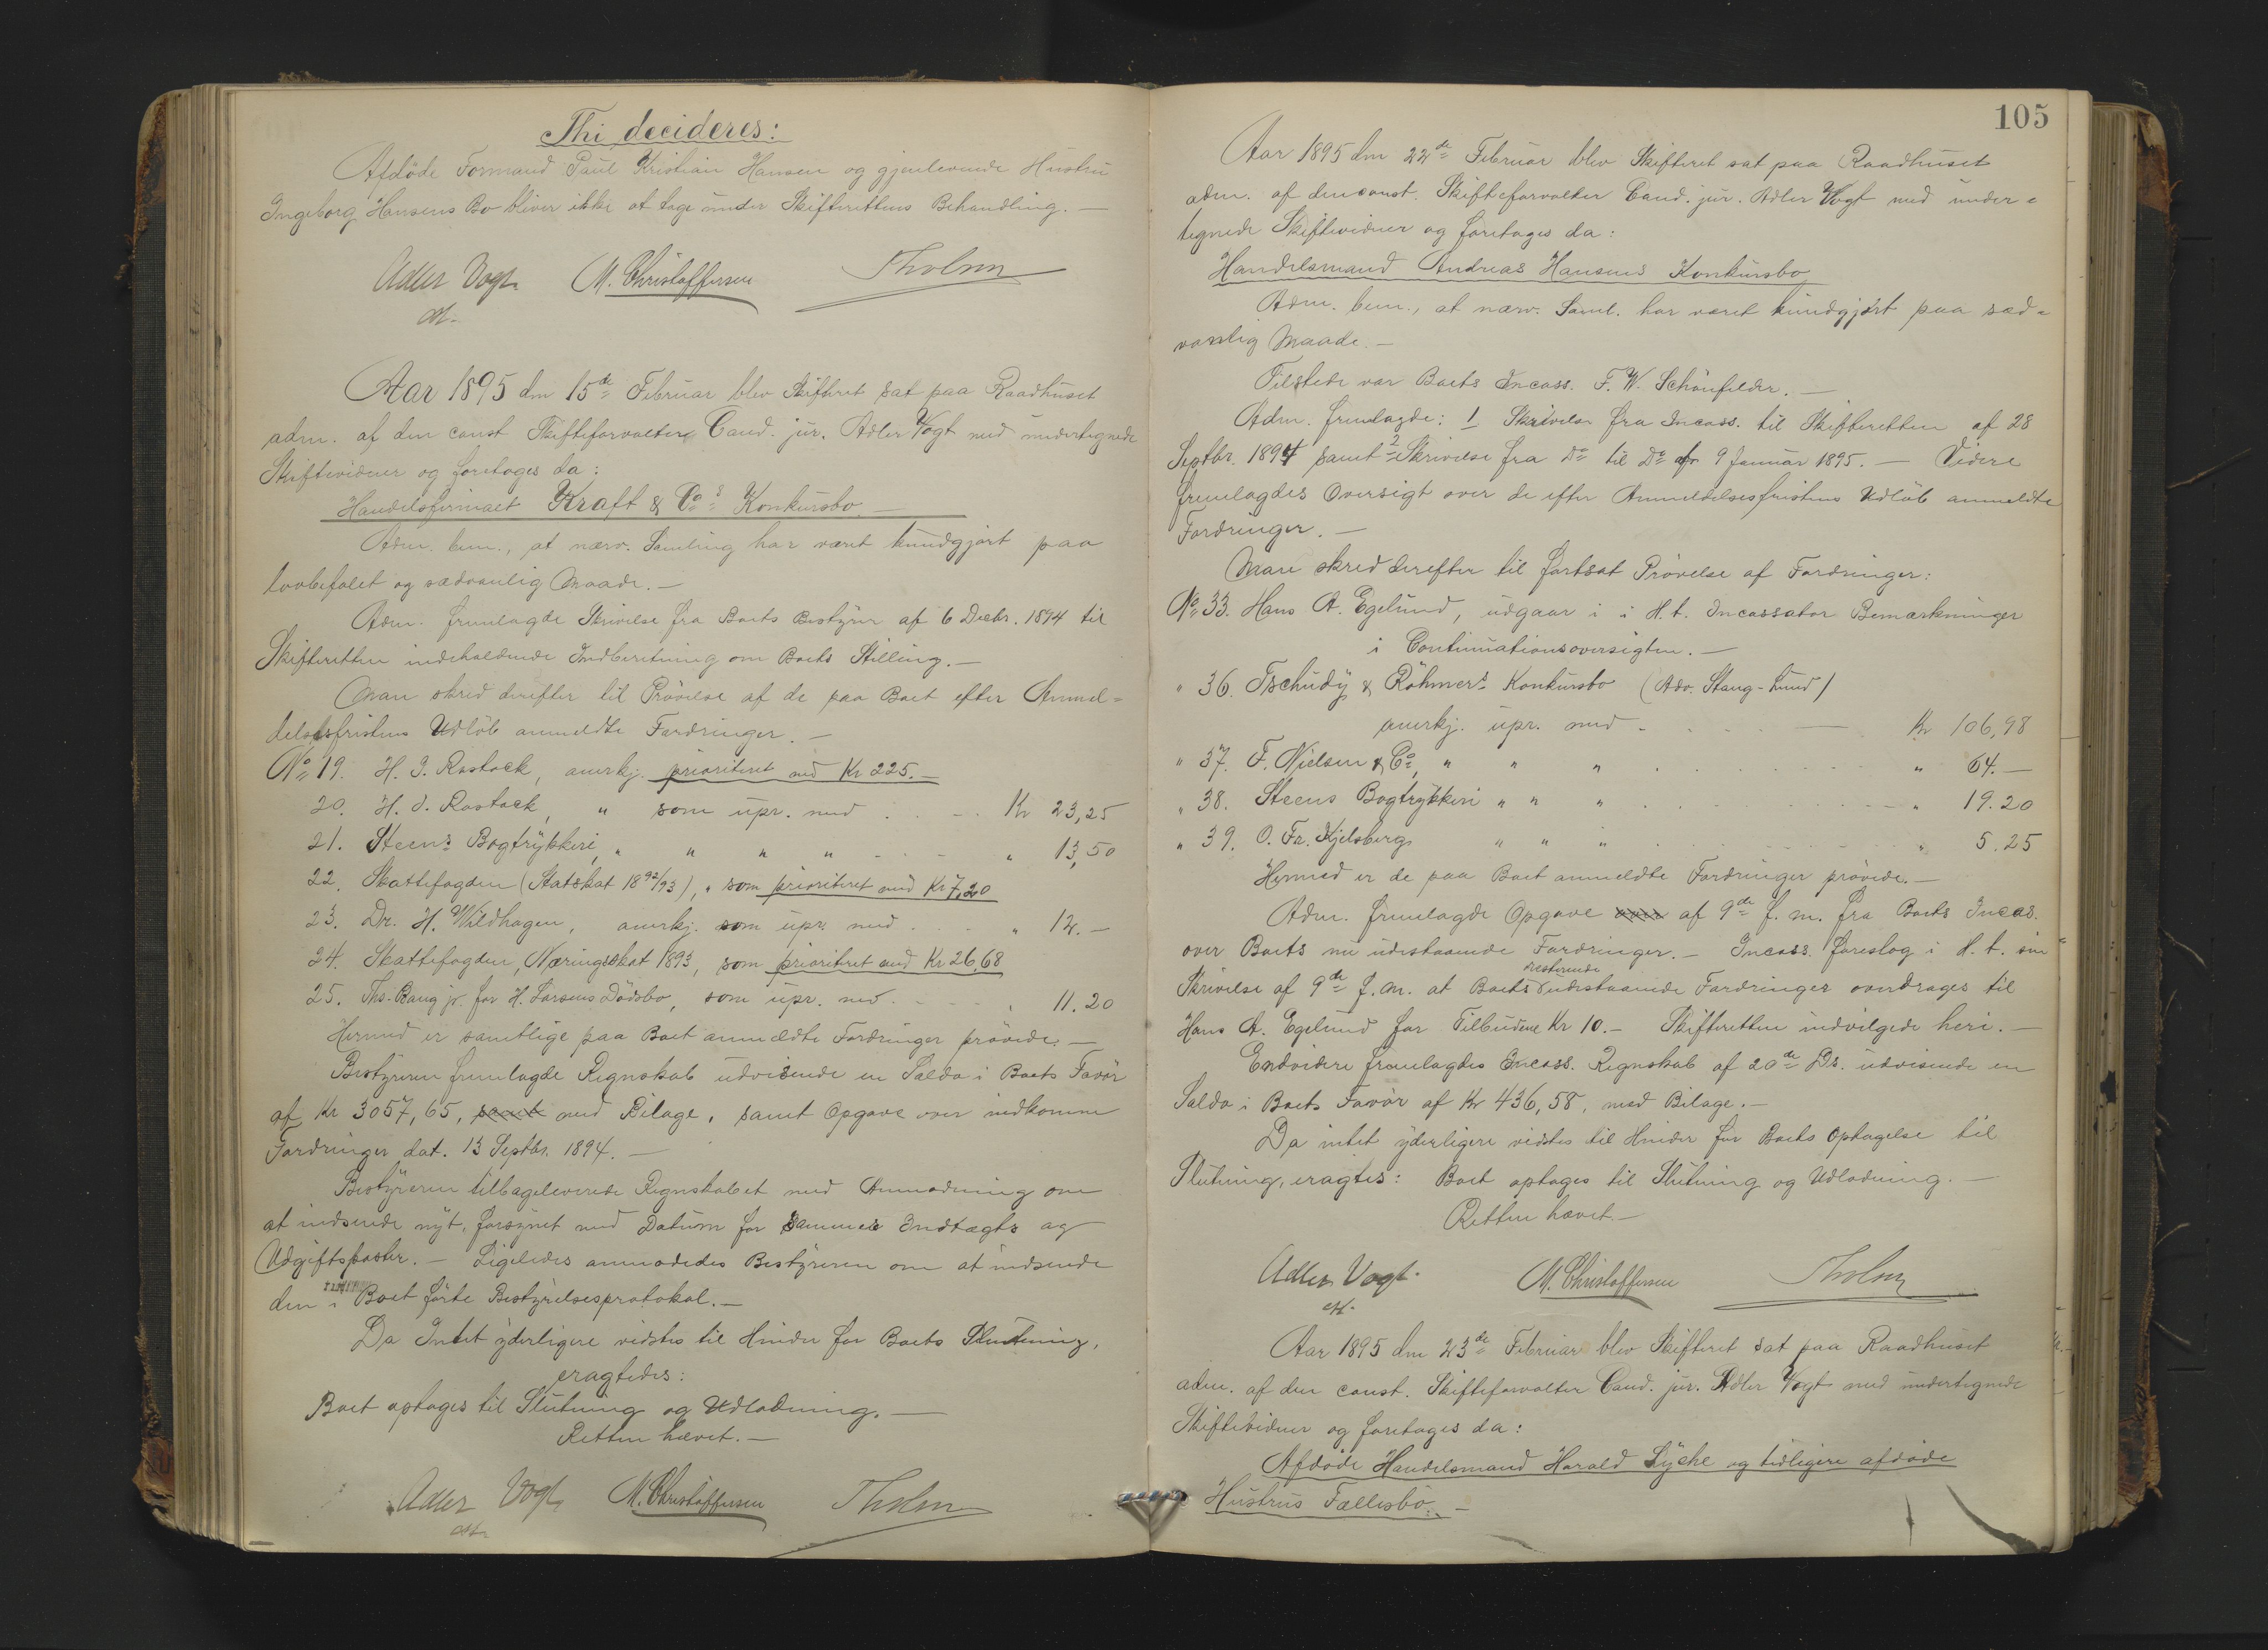 Thi decideres:
Afdöde Formand Paul Kristian Hansen og gjenlevende Hustru
Ingeborg Hansens Bo bliver ikke at tage under Skifterettens Behandling. —
Adler Vogt M. Christoffersen Tholm
Aar 1895 den 15de Februar blev Skifteret sat paa Raadhuset
adm. af den const Skifteforvalter Cand. jur. Adler Vogt med undertegnede
Skiftevidner og foretages da:
Handelsfirmaet Kraft & Co's Konkursbo. —
Adm. bem., at nærv. Samling har været kundgjort paa
lovbefalet og sædvanlig Maade. —
Adm. fremlagde Skrivelse fra Boets Bestyrer af 6 Decbr. 1894 til
Skifteretten indeholdende Indberetning om Boets Stilling. —
Man skred derefter til Prövelse af de paa Boet efter Anmel-
delsesfristens Udlöb anmeldte Fordringer. —
No 19. H. J. Rostock, anerkj. prioriteret med Kr 225. —
20. H. J. Rostock, " som upr. med . . . Kr 23,25
21. Steens Bogtrykkeri, " " " " . . . " 13,50
22. Skattefogden (Statskat 1892/93), " som prioriteret med Kr 7,20
23. Dr. H. Wildhagen, anerkj. som upr. med . . . " 12. —
24. Skattefogden, Næringsskat 1893, som prioriteret med Kr 26,68
25. Ths. Bang jr. for H. Larsens Dödsbo, som upr. med . . . " 11.20
Hermed er samtlige paa Boet anmeldte Fordringer prövede. —
Bestyreren fremlagde Regnskab udvisende en Saldo i Boets Favör
af Kr 3057,65, samt med Bilage, samt Opgave over indkomne
Fordringer dat. 13 Septbr. 1894. —
Bestyreren tilbageleverede Regnskabet med Anmodning om
at indsende nyt, forsynet med Datum for Sammes Indtægts og
Udgiftsposter. — Ligeledes anmodedes Bestyreren om at indsende
den i Boet förte Bestyrelsesprotokol. —
Da Intet yderligere vidstes til Hinder for Boets Slutning,
eragtedes:
Boet optages til Slutning og Udlodning. —
Retten hævet. —
Adler Vogt M. Christoffersen Tholm
105
Aar 1895 den 22de Februar blev Skifteret sat paa Raadhuset
adm. af den const. Skifteforvalter Cand. jur. Adler Vogt med under=
tegnede Skiftevidner og foretages da:
Handelsmand Andreas Hansens Konkursbo
Adm. bem., at nærv. Saml. har været kundgjort paa sæd=
vanlig Maade. —
Tilstede var Boets Incass. F. W. Schönfelder. —
Adm. fremlagde: 1 Skrivelse fra Incass. til Skifteretten af 28
Septbr. 1894 samt 2 Skrivelse fra Do til Do af 9 Januar 1895. — Videre
fremlagdes Oversigt over de efter Anmeldelsesfristens Udlöb anmeldte
Fordringer. —
Man skred derefter til fortsat Prövelse af Fordringer:
No 33. Hans A. Egelund, udgaar i i H. t. Incassator Bemærkninger
i Continuationsoversigten. —
" 36. Tschudy & Röhmers Konkursbo (Adv. Stang-Lund)
anerkj. upr. med . . . Kr 106,98
" 37. F. Nielsen & Co, " " " . . . " 64. —
" 38. Steens Bogtrykkeri " " " . . . " 19.20
" 39. O. Fr. Kjelsberg " " " . . . " 5.25
Hermed er de paa Boet anmeldte Fordringer prövede. —
Adm. fremlagde Opgave over af 9de f. m. fra Boets Incas.
over Boets nu udestaaende Fordringer. — Incass. foreslog i H. t. sin
Skrivelse af 9de f. m. at Boets resterende udestaaende Fordringer overdrages til
Hans A. Egelund for Tilbudene Kr 10. — Skifteretten indvilgede heri. —
Endvidere fremlagdes Incass. Regnskab af 20de Ds. udvisende en
Saldo i Boets Favör af Kr 436,58, med Bilage. —
Da intet yderligere vidstes til Hinder for Boets Optagelse til
Slutning, eragtes: Boet optages til Slutning og Udlodning. —
Retten hævet. —
Adler Vogt. M. Christoffersen Tholm
Aar 1895 den 23de Februar blev Skifteret sat paa Raadhuset
adm. af den const. Skifteforvalter Cand. jur. Adler Vogt med undertegnede
Skiftevidner og foretages da:
Afdöde Handelsmand Harald Lyche og tidligere afdöde
Hustrus Fællesbo. —